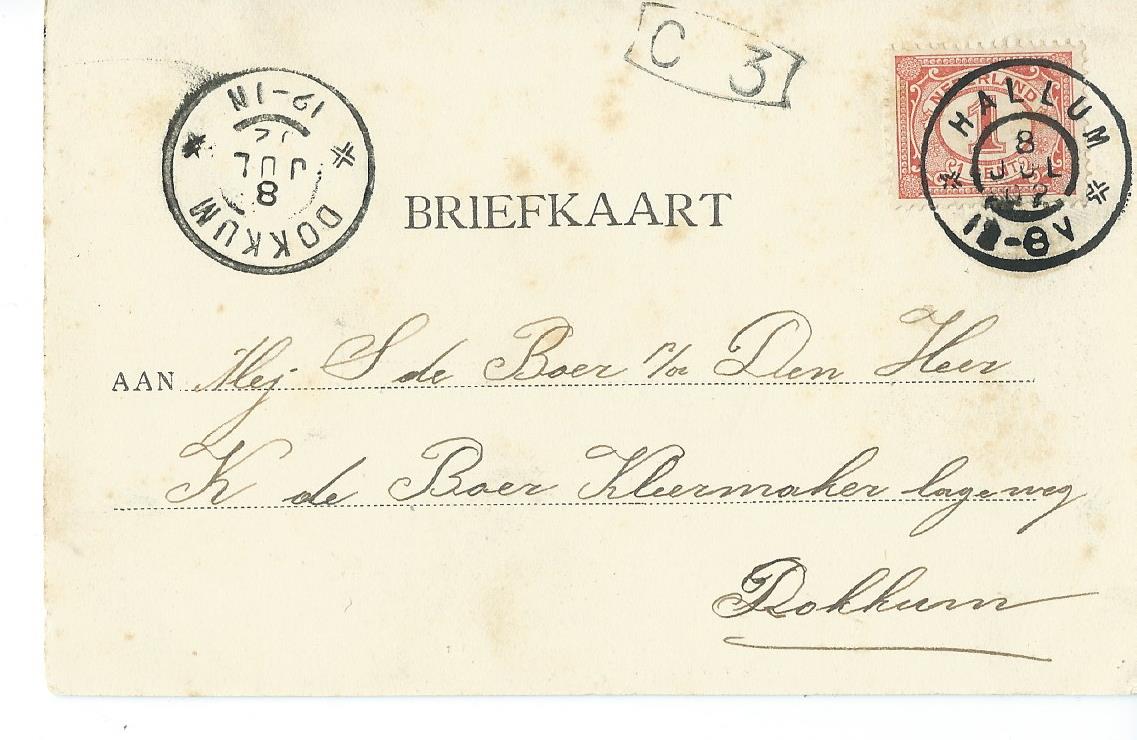 C 3
NEDERLAND
1
CENT
HALLUM
8
JUL
02
12-8V
DOKKUM
8
JUL
12-1N
BRIEFKAART
AAN Mej S de Boer p/a Den Heer
K de Boer Kleermaker lageweg
Dokkum